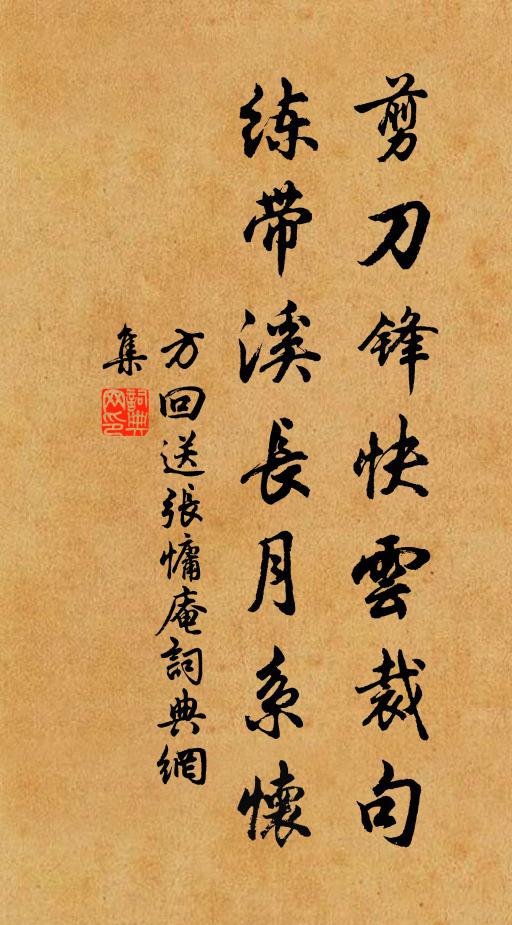 剪刀鋒快雲裁句
练带溪長月系懷
方回送張慵庵詞典網
集
詞典網印